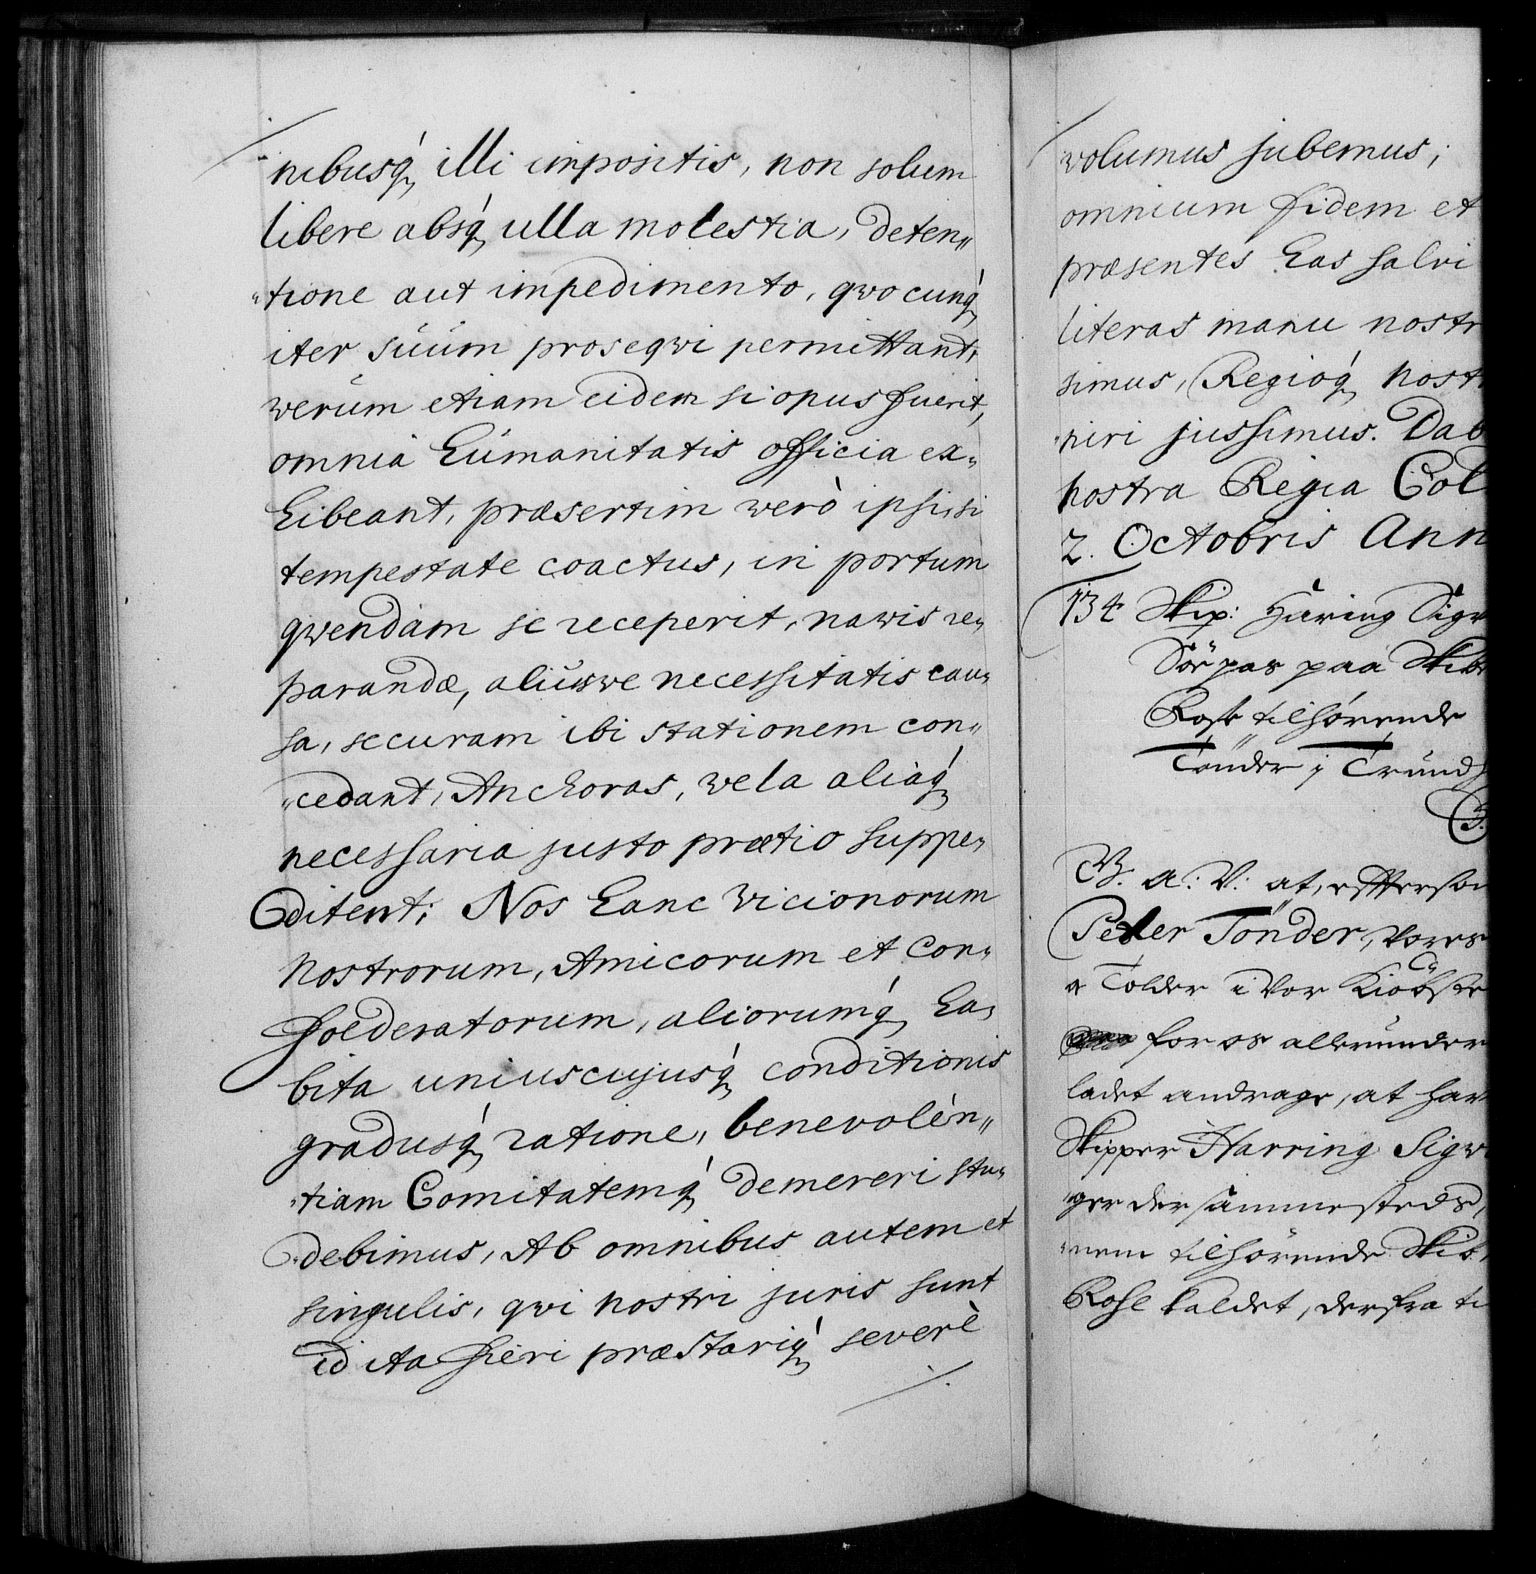 nibusq́ illi impositis, non solum
libere absq́ ulla molestia, deten„
„tione aut impedimento, qvocunq́
iter súúm proseqvi permittant,
verúm etiam eidem si opus fuerit,
omnia húmanitatis officia ex„
hibeant, præsertim verò ipsi, si
tempestate coactus, in portum
qvendam se receperit, navis re„
parandæ, aliúsve necessitatis cau„
sa, securam ibi stationem con„
„cedant, Anchoras, vela aliaq́
necessaria justo prætio suppe„
ditent; Nos hanc Vicionorum
Nostrorum, Amicorum et Con„
foederatorum, aliorumq́ ha„
bita uniuscujusq́ conditionis
gradusq́ ratione, benevolén„
„tiam Comitatemq́ demereri stu„
debimus, Ab omnibus autem et
singulis, qvi nostri juris sunt
id ita fieri præstariq́ severè
volumus jubemus;
omnium fidem et
præsentes has salvi
literas manu nostr
simus, Regioq́ nost
niri jussimus. Dab
nostra Regia Col
2. Octobris Ann
134 Skip: Haring Sigv
Søe pas paa Skibe
Rose tilhørende
Tønder i Trundh
G. a: V: at, efftersom
Peter Tønder, vores
a Tolder i Vor Kiøbste
for os allerunder
ladet andrage, at han
Skipper Harring Sigv
ger der sammesteds,
nem tilhørende Skib,
Rose kaldet, derfra ti